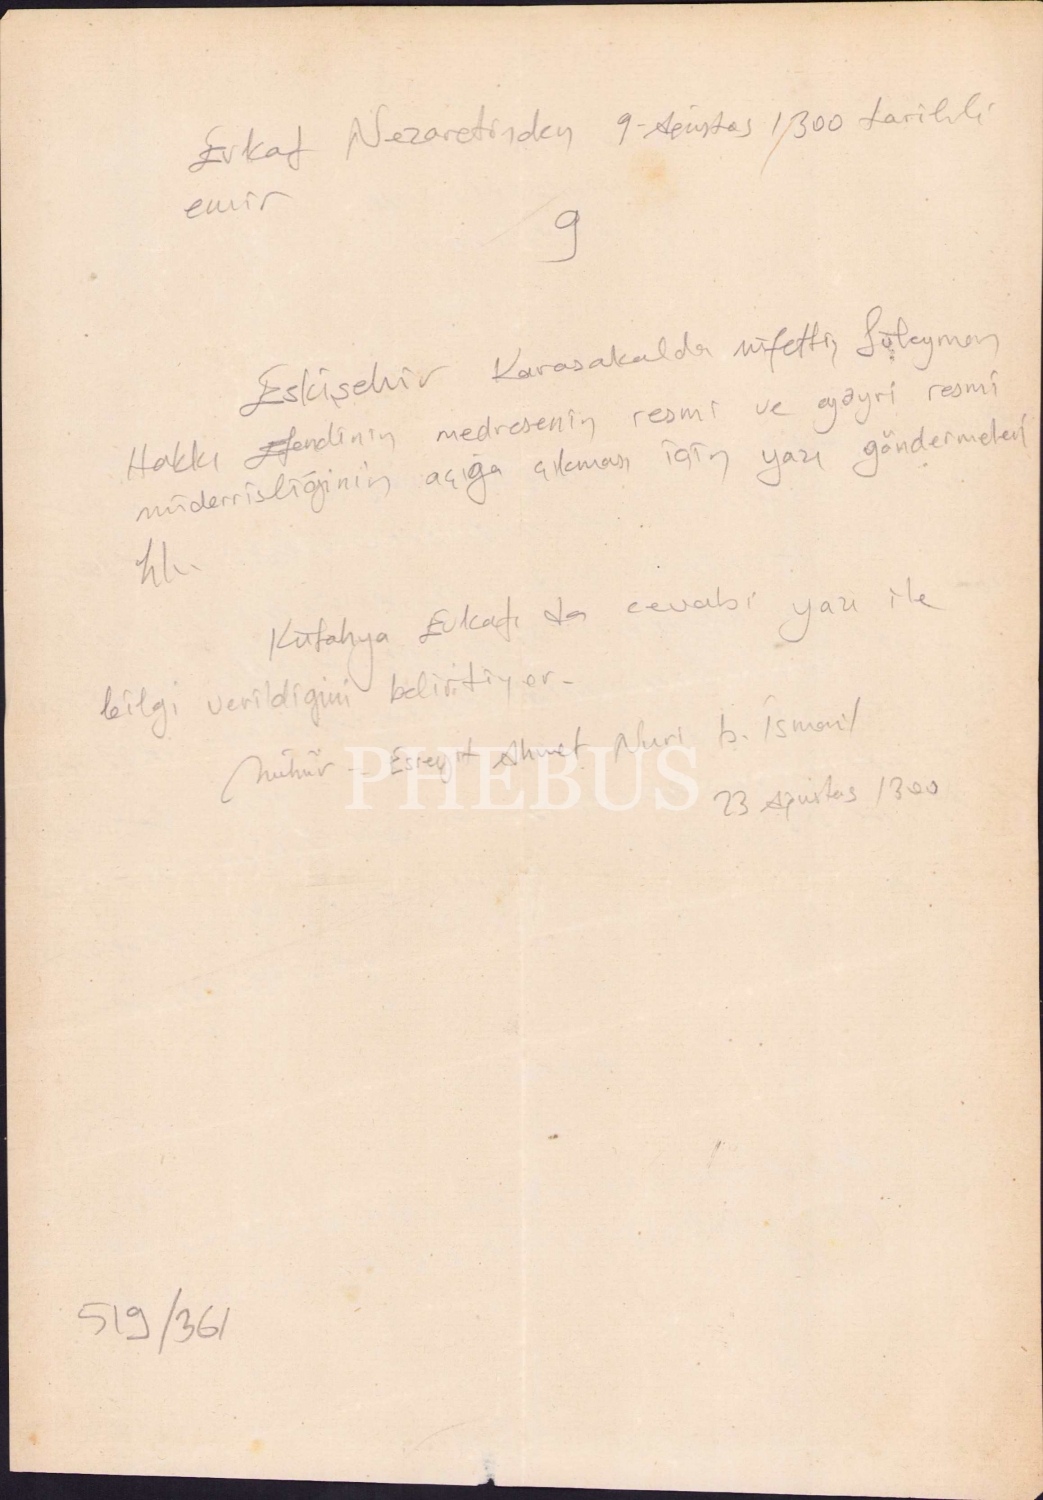 Evkaf Nezaretinden 9-Ağustos 1300 tarihli
emir
9
Eskişehir Karasakalda müfettiş Süleyman
Hakkı Efendinin medresenin resmi ve gayri resmi
müderrisliğinin açığa çıkması için yazı göndermeleri
hk.
Kütahya Evkafı da cevabi yazı ile
bilgi verildiğini belirtiyor-
Mühür - Esseyit Ahmet Nuri b. İsmail
PHEBUS
23 Ağustos 1300
519/361